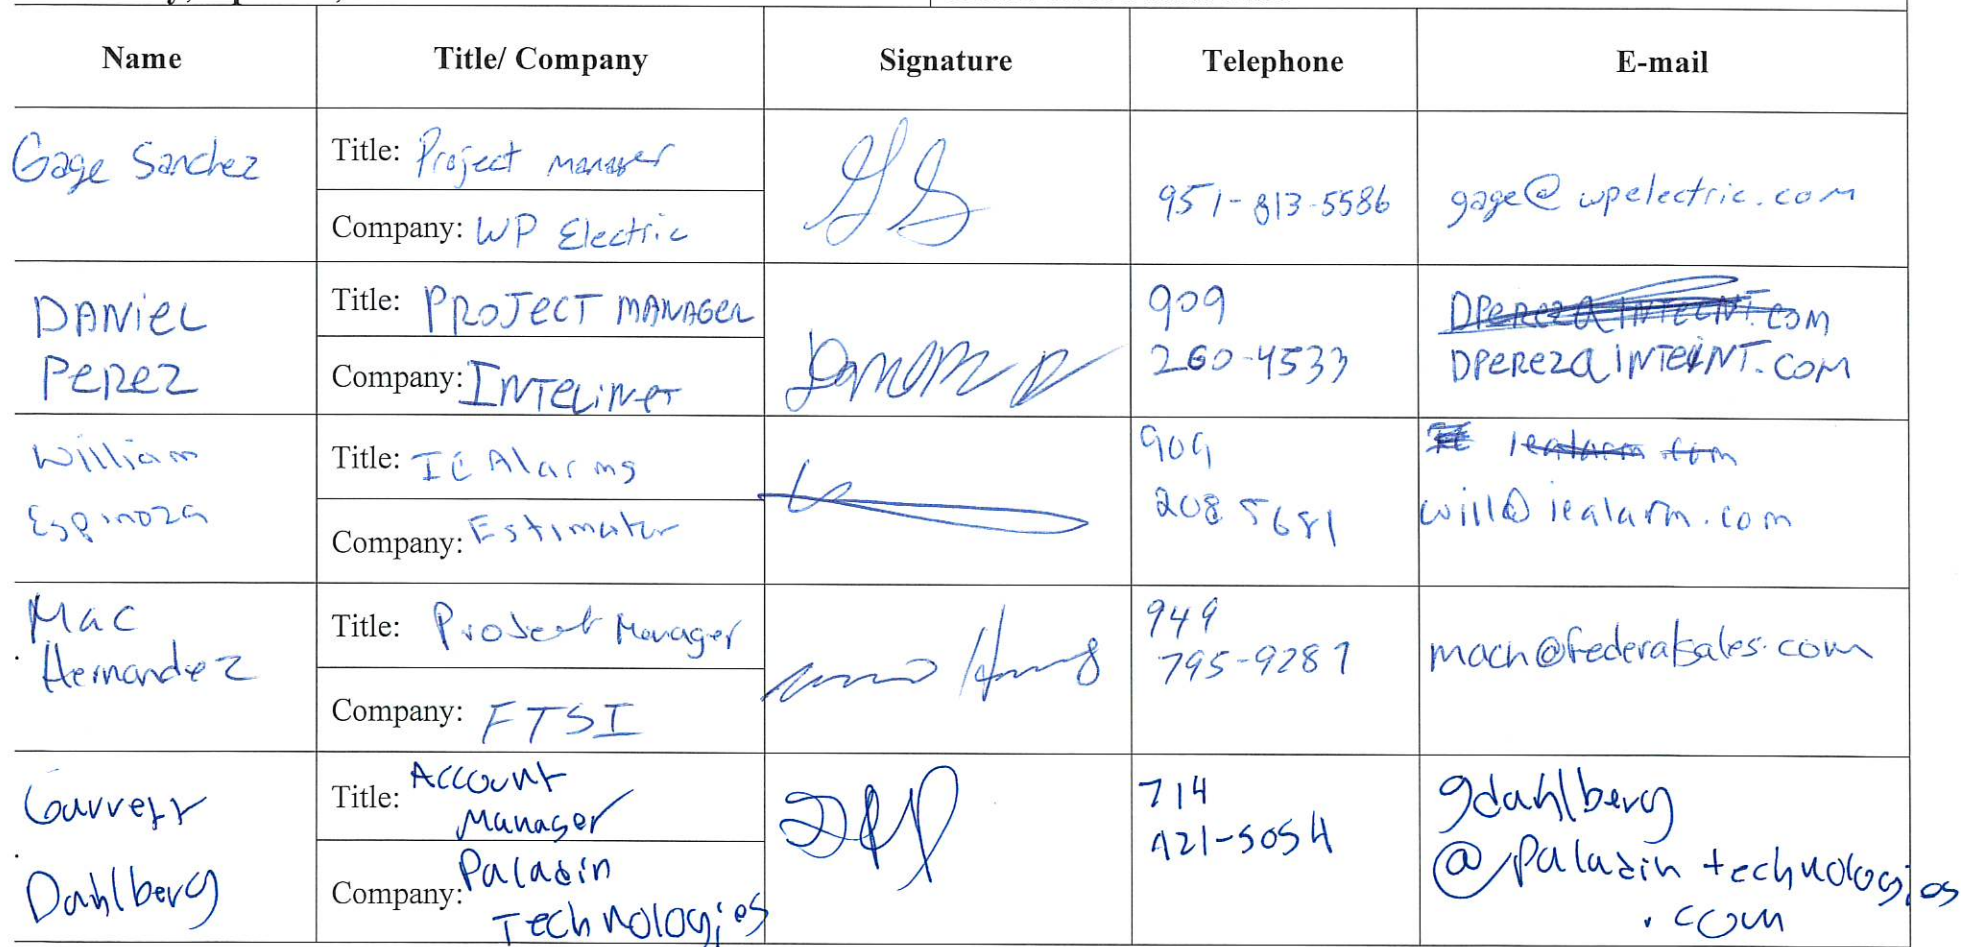 Name Title/ Company Signature Telephone E-mail
Gage Sanchez
Title: Project manager
Company: WP Electric
951-813-5586
gage@wpelectric.com
DANIEL
PEREZ
Title: PROJECT MANAGER
Company: INTELINET
909
260-4533
DPEREZ@INTELNT.COM
William
Espinoza
Title: IE Alarms
Company: Estimator
909
208 5681
iealarm.com
will@iealarm.com
Mac
Hernandez
Title: Project Manager
Company: FTSI
949
795-9287
mach@federalsales.com
Garrett
Dahlberg
Title: Account
Manager
Company: Paladin
Technologies
714
421-5054
gdahlberg
@paladintechnologies
.com